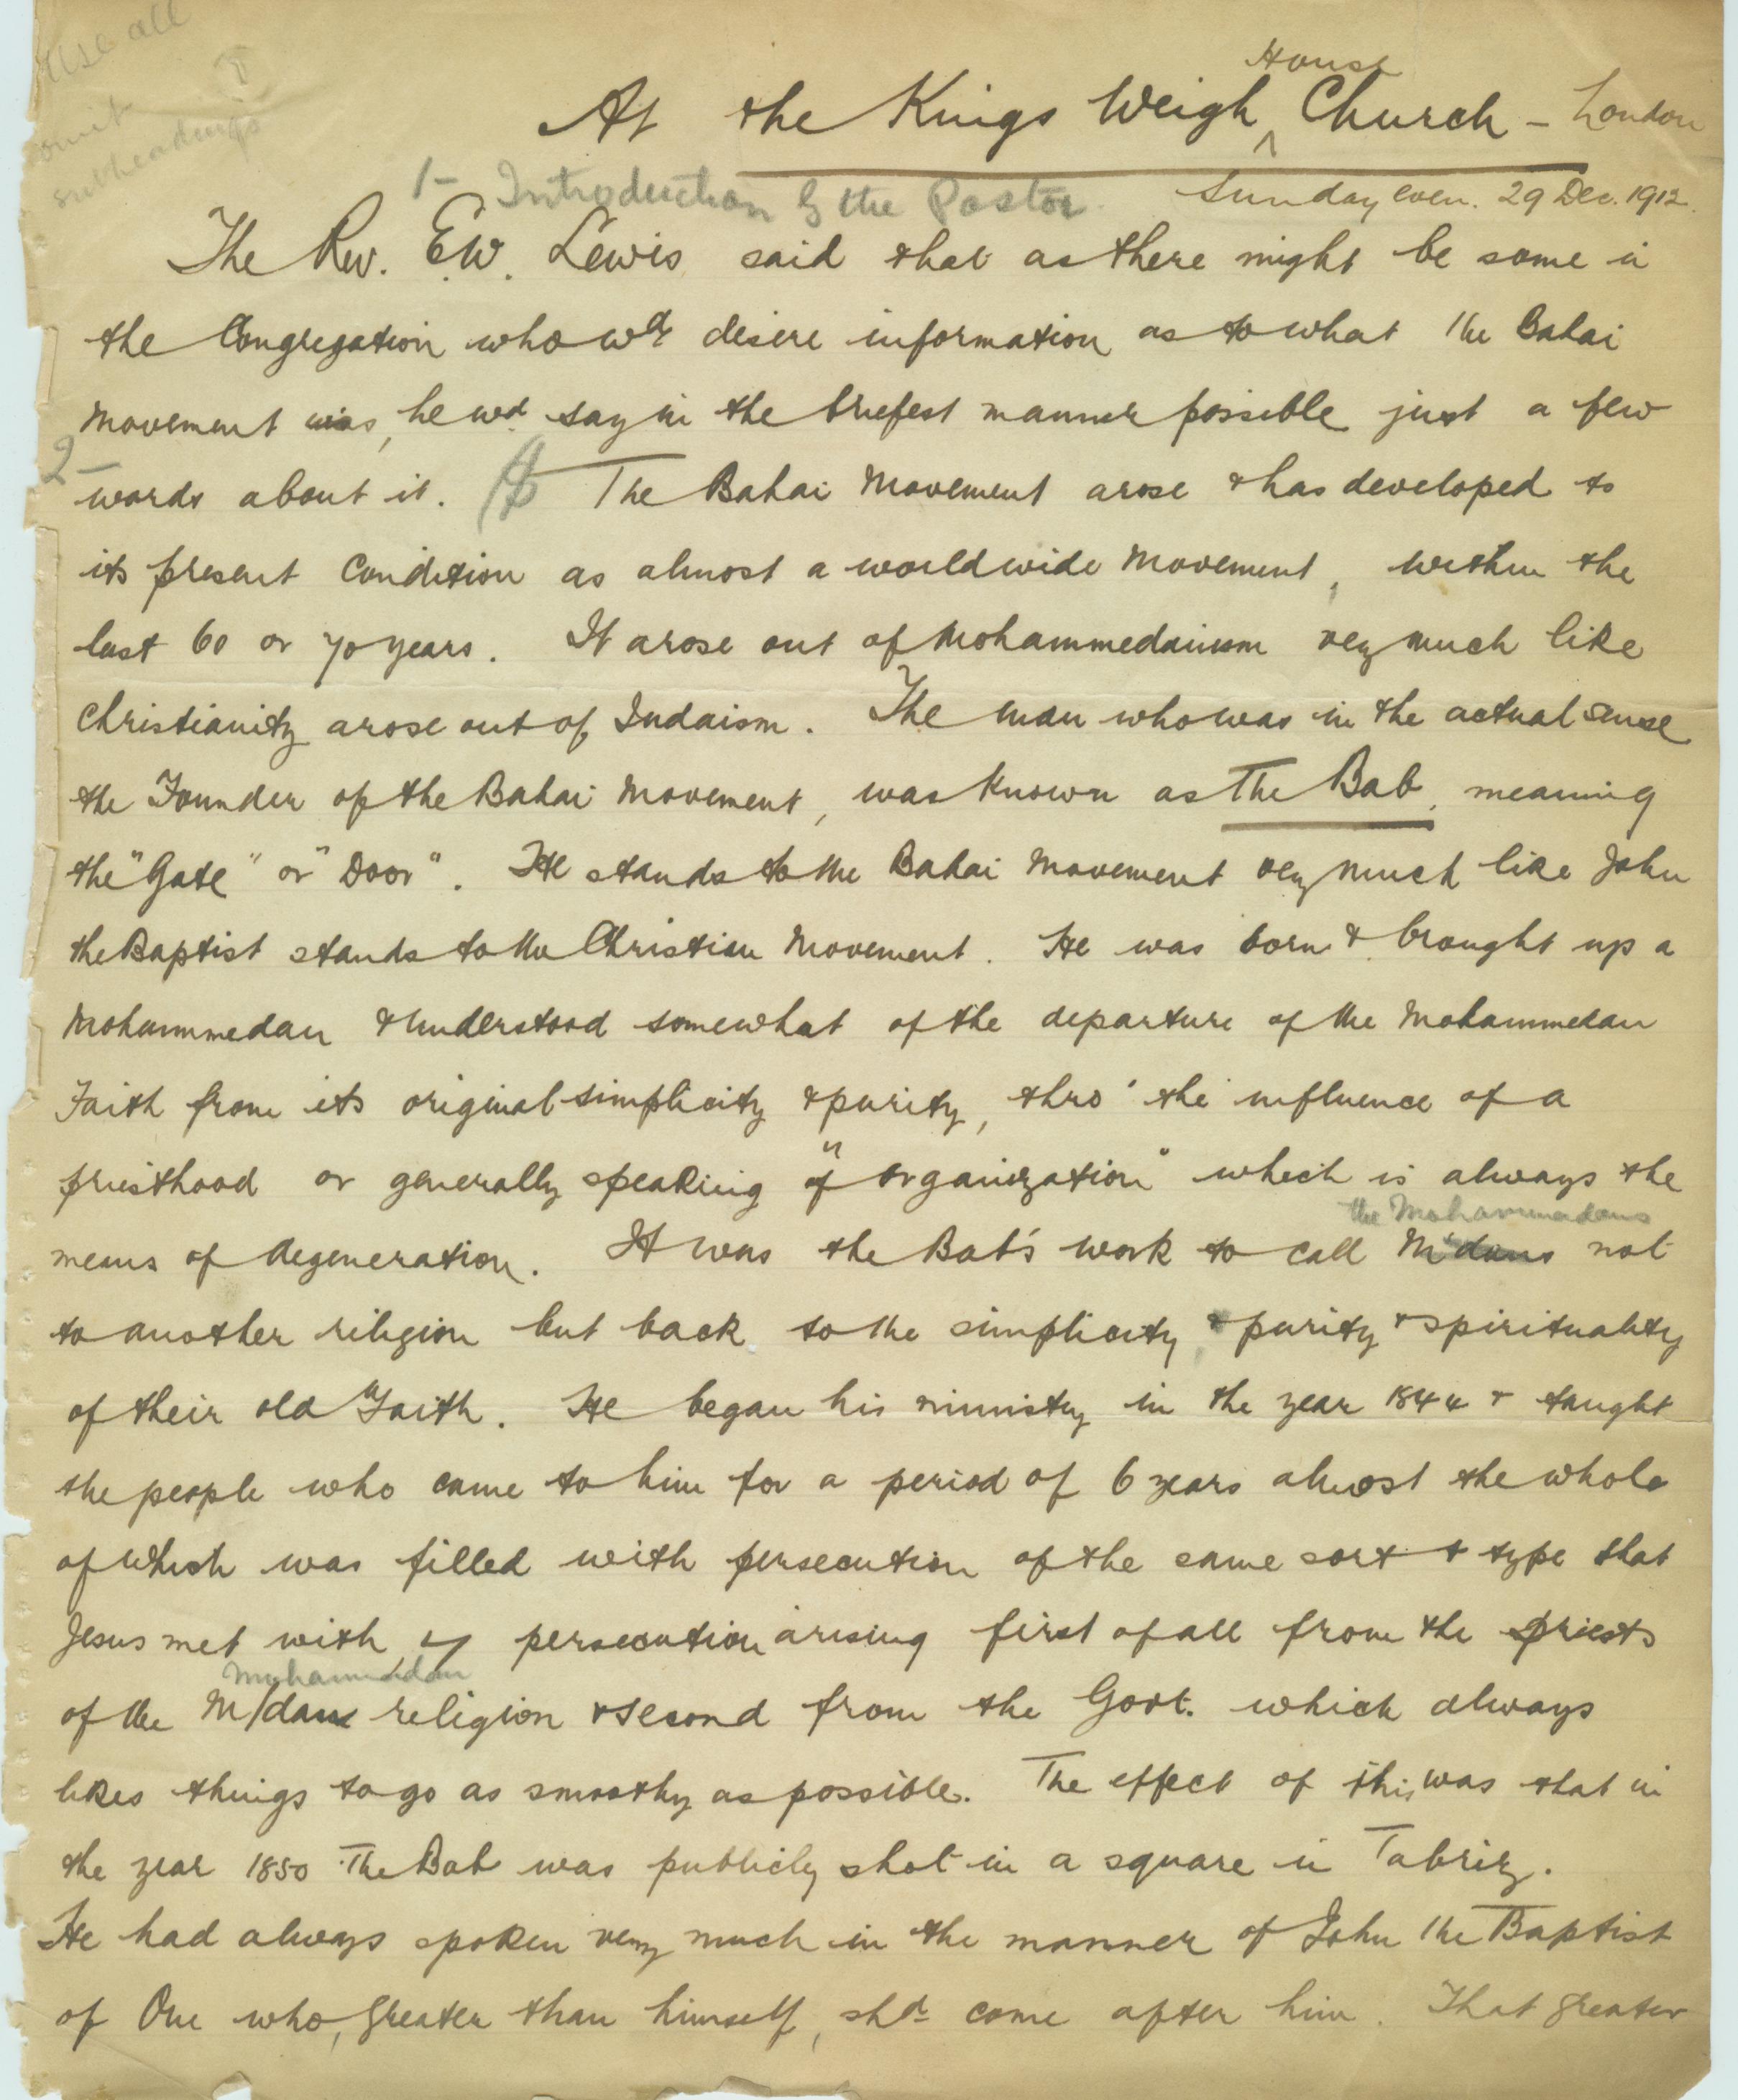 use all
omit
subheadings
House
At the Kings Weigh ^ Church - London
1- Introduction by the Pastor. Sunday even. 29 Dec. 1912.
The Rev. E.W. Lewis said that as there might be some in
the Congregation who wd desire information as to what the Bahai
Movement was, he wd say in the briefest manner possible just a few
2- words about it. The Bahai Movement arose & has developed to
its present condition as almost a worldwide Movement, within the
last 60 or 70 years. It arose out of Mohammedanism very much like
Christianity arose out of Judaism. The man who was in the actual sense
the Founder of the Bahai Movement, was known as The Bab, meaning
the "Gate" or "Door". He stands to the Bahai Movement very much like John
the Baptist stands to the Christian Movement. He was born & brought up a
Mohammedan & understood somewhat of the departure of the Mohammedan
Faith from its original simplicity & purity, thro' the influence of a
priesthood or generally speaking of "organization" which is always the
the Mohammedans
means of degeneration. It was the Bab's work to call M'dans not
to another religion but back to the simplicity & purity & spirituality
of their old Faith. He began his ministry in the year 1844 & taught
the people who came to him for a period of 6 years almost the whole
of which was filled with persecution of the same sort & type that
Jesus met with, persecution arising first of all from the priests
Mohammedan
of the M/dan religion & second from the Govt. which always
likes things to go as smoothly as possible. The effect of this was that in
the year 1850 The Bab was publicly shot in a square in Tabriz.
He had always spoken very much in the manner of John the Baptist
of One who, greater than himself, shd come after him. That greater